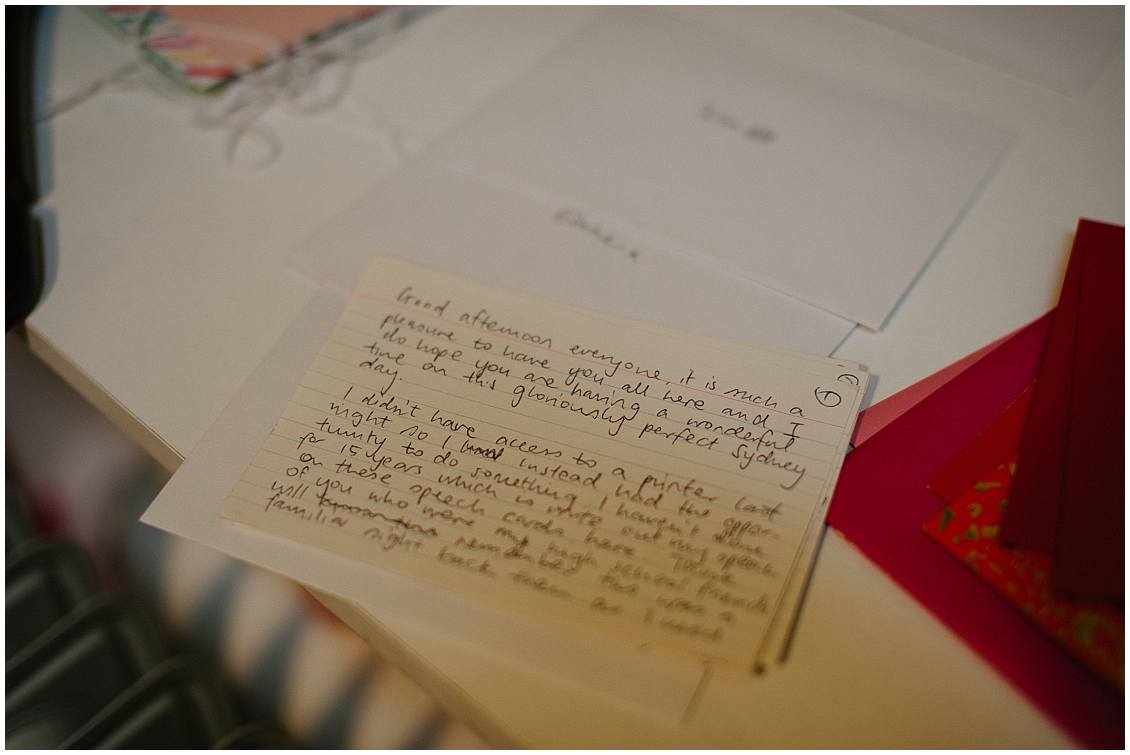 Good afternoon everyone, it is such a
pleasure to have you all here and I
do hope you are having a wonderful
time on this gloriously perfect Sydney
day.
I didn't have access to a printer last
night so I instead had the oppor-
tunity to do something I haven't done
for 15 years which is write out my speech
on these speech cards here. Those
of you who were my high school friends
will remember this was a
familiar sight back then as I used
1